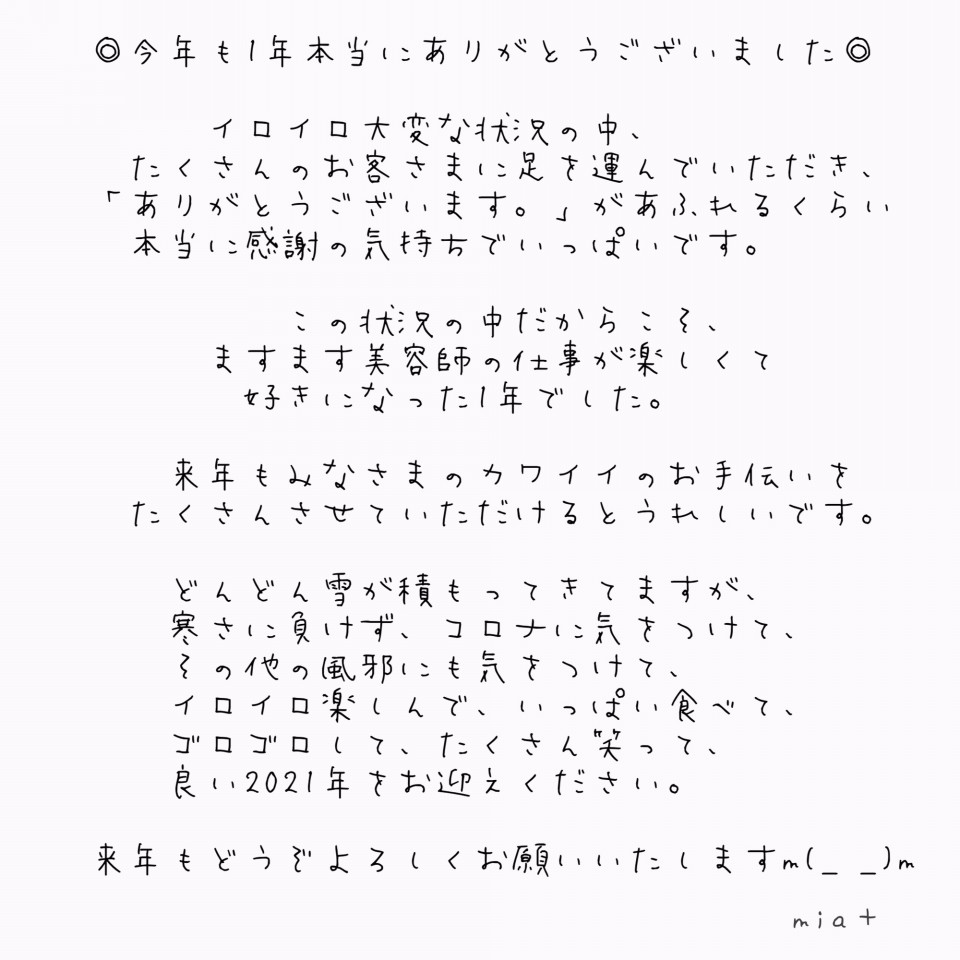 ◎今年も1年本当にありがとうございました◎
イロイロ大変な状況の中、
たくさんのお客さまに足を運んでいただき、
「ありがとうございます。」があふれるくらい
本当に感謝の気持ちでいっぱいです。
この状況の中だからこそ、
ますます美容師の仕事が楽しくて
好きになった1年でした。
来年もみなさまのカワイイのお手伝いを
たくさんさせていただけるとうれしいです。
どんどん雪が積もってきてますが、
寒さに負けず、コロナに気をつけて、
その他の風邪にも気をつけて、
イロイロ楽しんで、いっぱい食べて、
ゴロゴロして、たくさん笑って、
良い2021年をお迎えください。
来年もどうぞよろしくお願いいたしますm(_ _)m
mia+